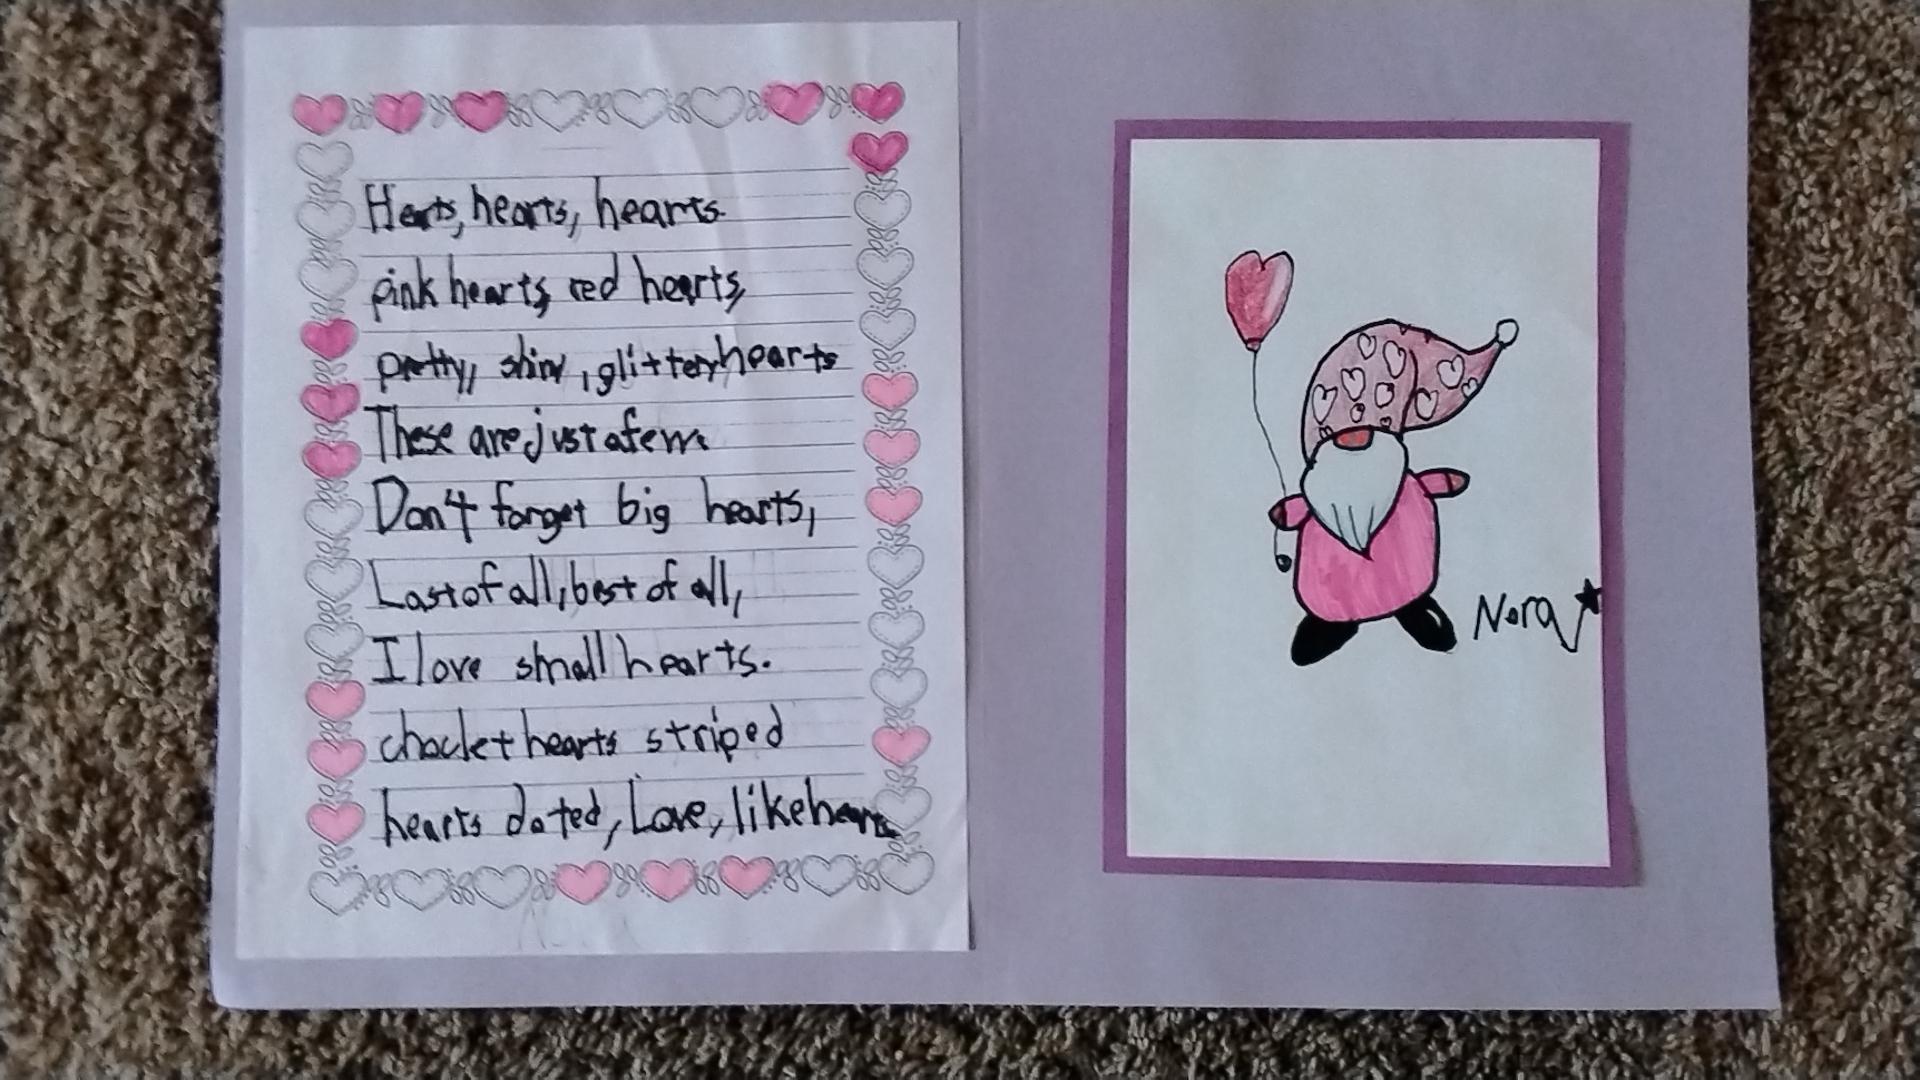 Hearts, hearts, hearts.
pink hearts, red hearts,
pretty, shiny, glittery hearts
These are just a few.
Don't forget big hearts,
Last of all, best of all,
I love small hearts.
choclet hearts striped
hearts doted, Love, like hearts
Nora